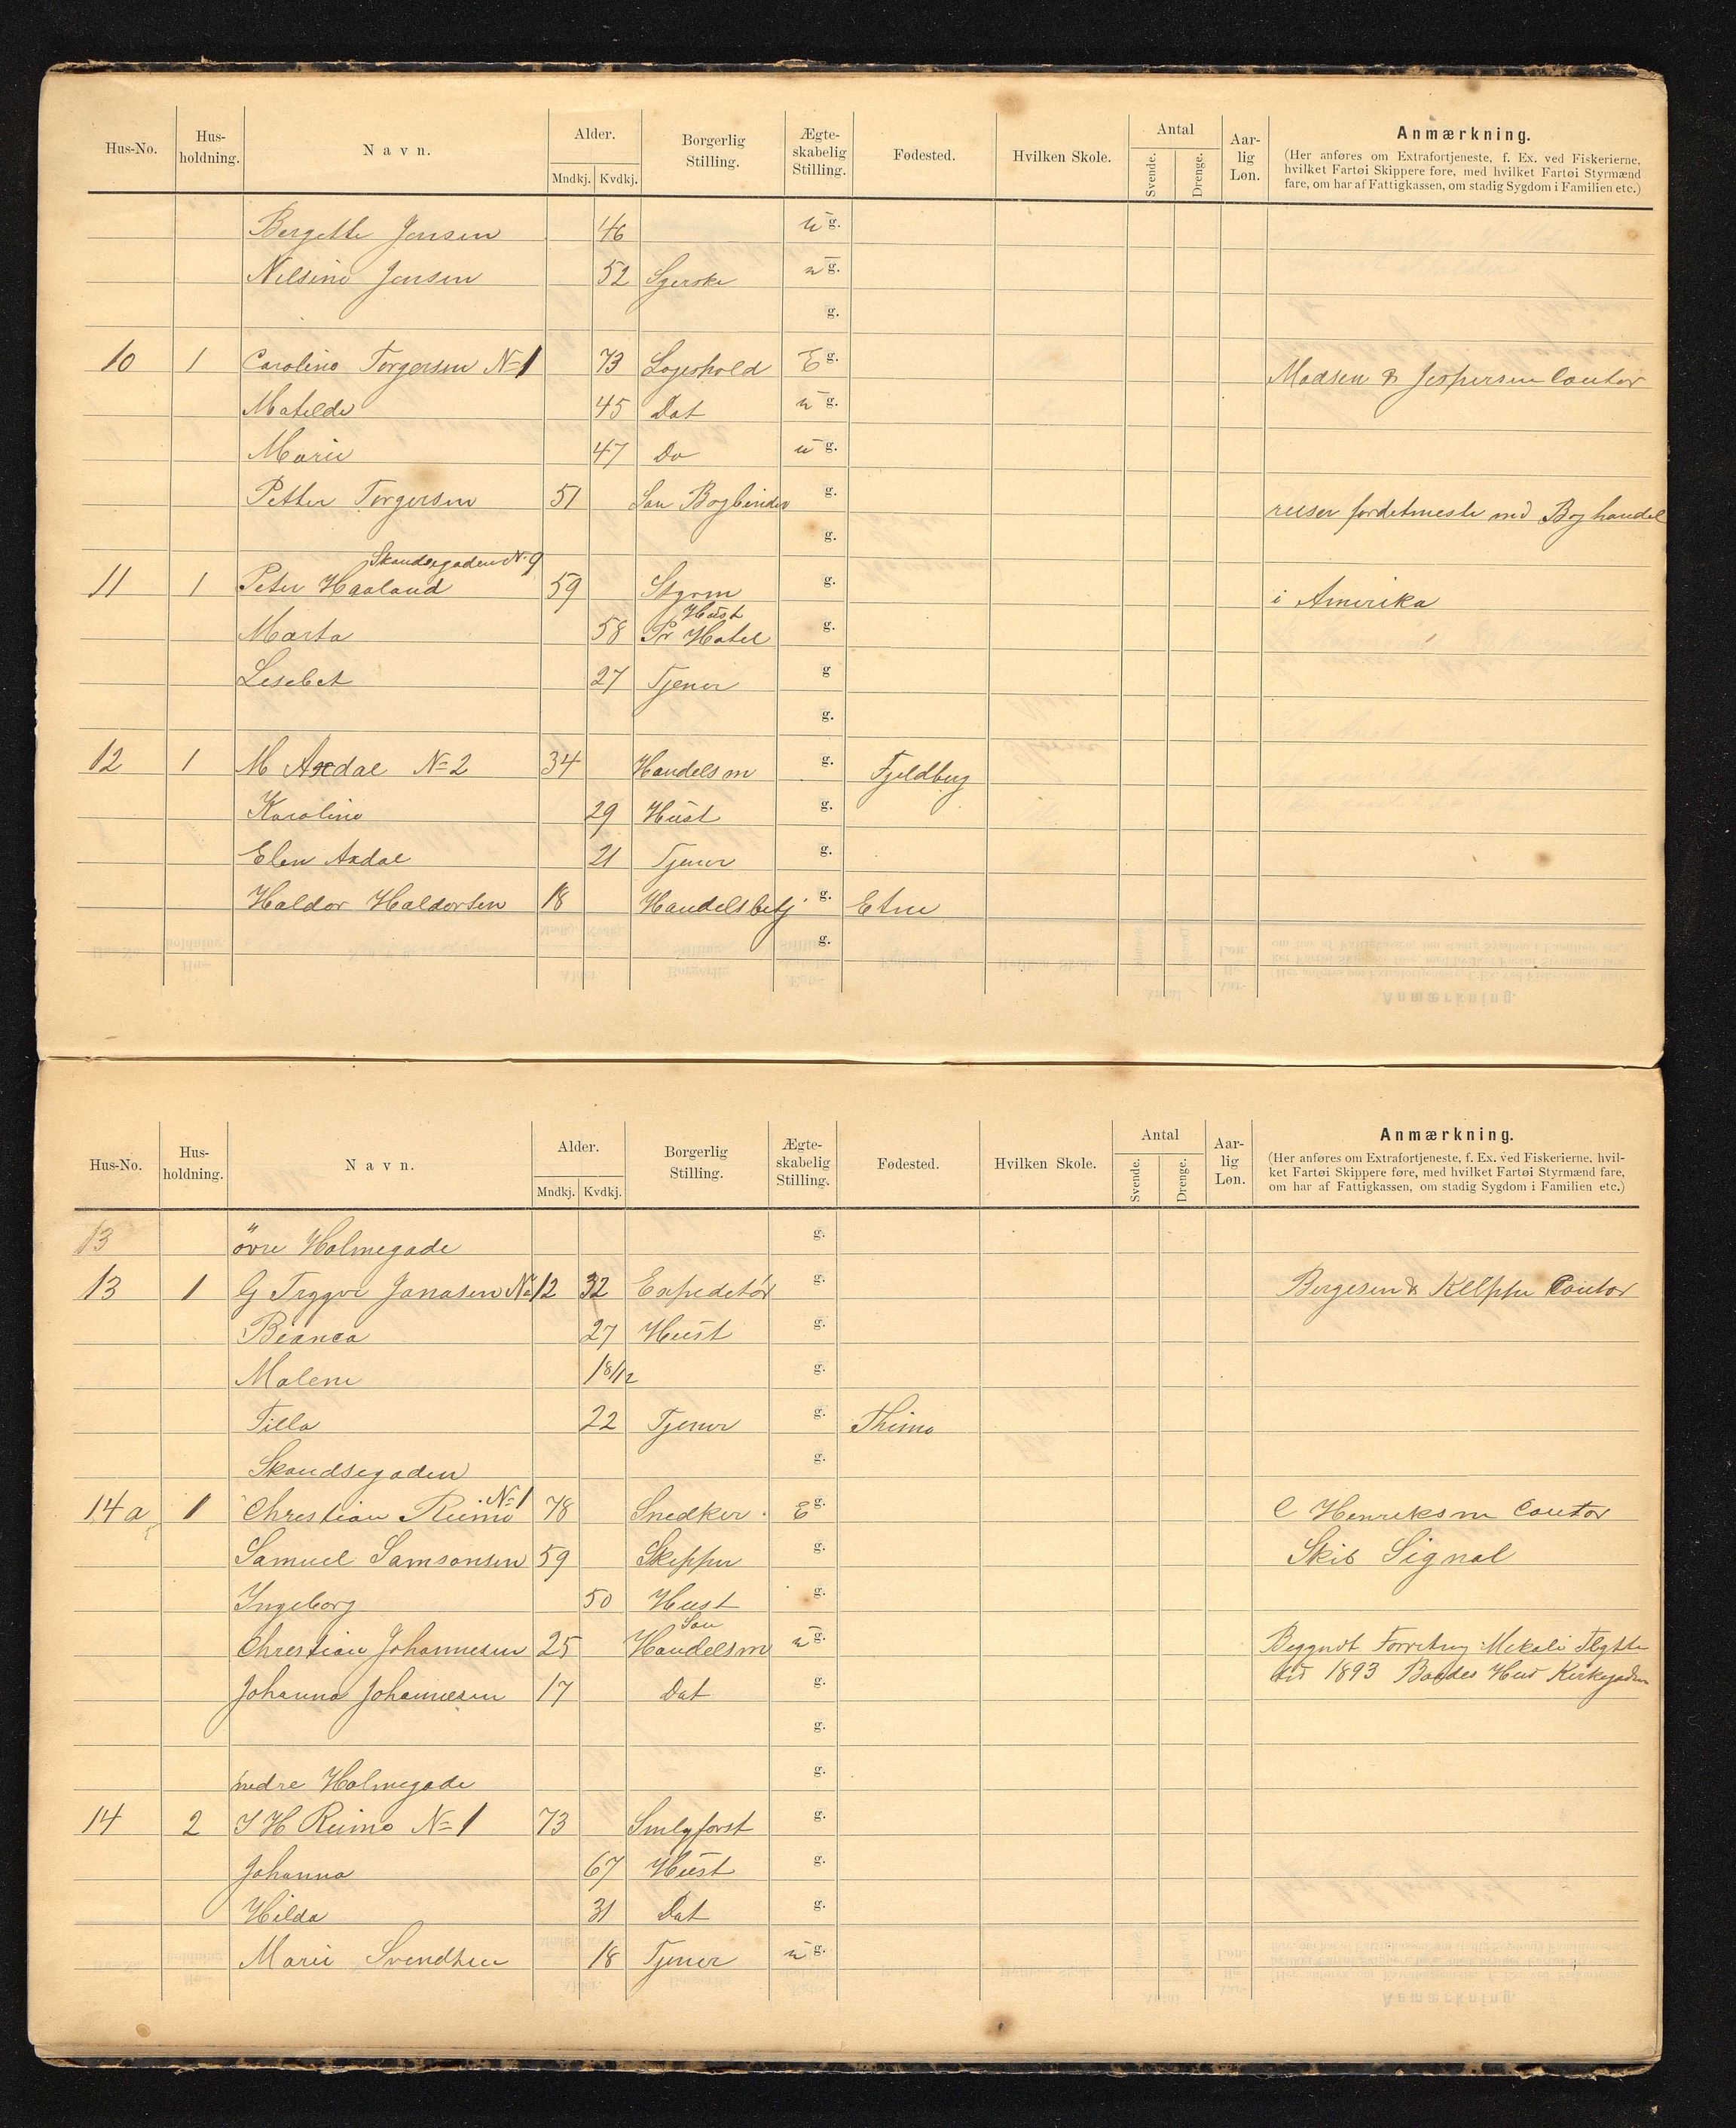 Hus-No. Hus-holdning. Navn. Alder. Mndkj. Kvdkj. Borgerlig Stilling. Ægte-skabelig Stilling. Fødested. Hvilken Skole. Antal Svende. Drenge. Aar-lig Løn. Anmærkning.
(Her anføres om Extrafortjeneste, f. Ex. ved Fiskerierne,
hvilket Fartøi Skippere føre, med hvilket Fartøi Styrmænd
fare, om har af Fattigkassen, om stadig Sygdom i Familien etc.)
Bergette Jensen 46 u g.
Nilsine Jensen 52 Syerske u g.
g.
10 1 Caroline Torgersen No 1 73 Logishold E g. Madsen & Jespersen Contor
Matilde 45 Dat u g.
Marie 47 Do u g.
Petter Torgersen 51 Søn Bogbinder g. reiser fordetmeste med Boghandel
g.
Skandsegaden No 9
11 1 Peter Haaland 59 Styrm g. i Amerika
Hust
Marta 58 Pr Hotel g.
Lisebet 27 Tjener g
g.
12 1 M Axdal No 2 34 Handelsm g. Fjeldberg
Karoline 29 Hust g.
Elen Axdal 21 Tjener g.
Haldor Haldorsen 18 Handelsbetj g. Etne
g.
Hus-No. Hus-holdning. Navn. Alder. Mndkj. Kvdkj. Borgerlig Stilling. Ægte-skabelig Stilling. Fødested. Hvilken Skole. Antal Svende. Drenge. Aar-lig Løn. Anmærkning.
(Her anføres om Extrafortjeneste, f. Ex. ved Fiskerierne, hvil-
ket Fartøi Skippere føre, med hvilket Fartøi Styrmænd fare,
om har af Fattigkassen, om stadig Sygdom i Familien etc.)
13 övre Holmegade g.
13 1 G Trygve Jonasen No 12 32 Expeditör g. Bergesen & Contor
Bianca 27 Hust g.
Malene 1 8/12 g.
Tilla 22 Tjener g. Thime
Skandsegaden g.
No 1
14a 1 Christian Reime 78 Snedker E g. C Henriksen Contor
Samuel Samsonsen 59 Skipper g. Skib Signal
Ingeborg 50 Hust g.
Søn
Christian Johannesen 25 Handelsm u g. Begyndt Forretning Mikali Flytte
Johanna Johannesen 17 Dat g. tid 1893 Hus Kirkegaden
g.
nedre Holmegade g.
14 2 I H Reime No 1 73 g.
Johanna 67 Hust g.
Hilda 31 Dat g.
Marie Svendsen 18 Tjener u g.